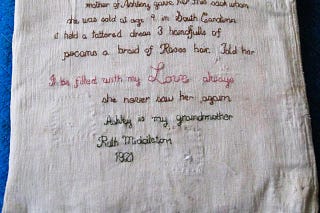 mother of Ashley gave her this sack when
she was sold at age 9 in South Carolina
it held a tattered dress 3 handfulls of
pecans a braid of Roses hair. Told her
It be filled with my Love always
she never saw her again
Ashley is my grandmother
Ruth Middleton
1921